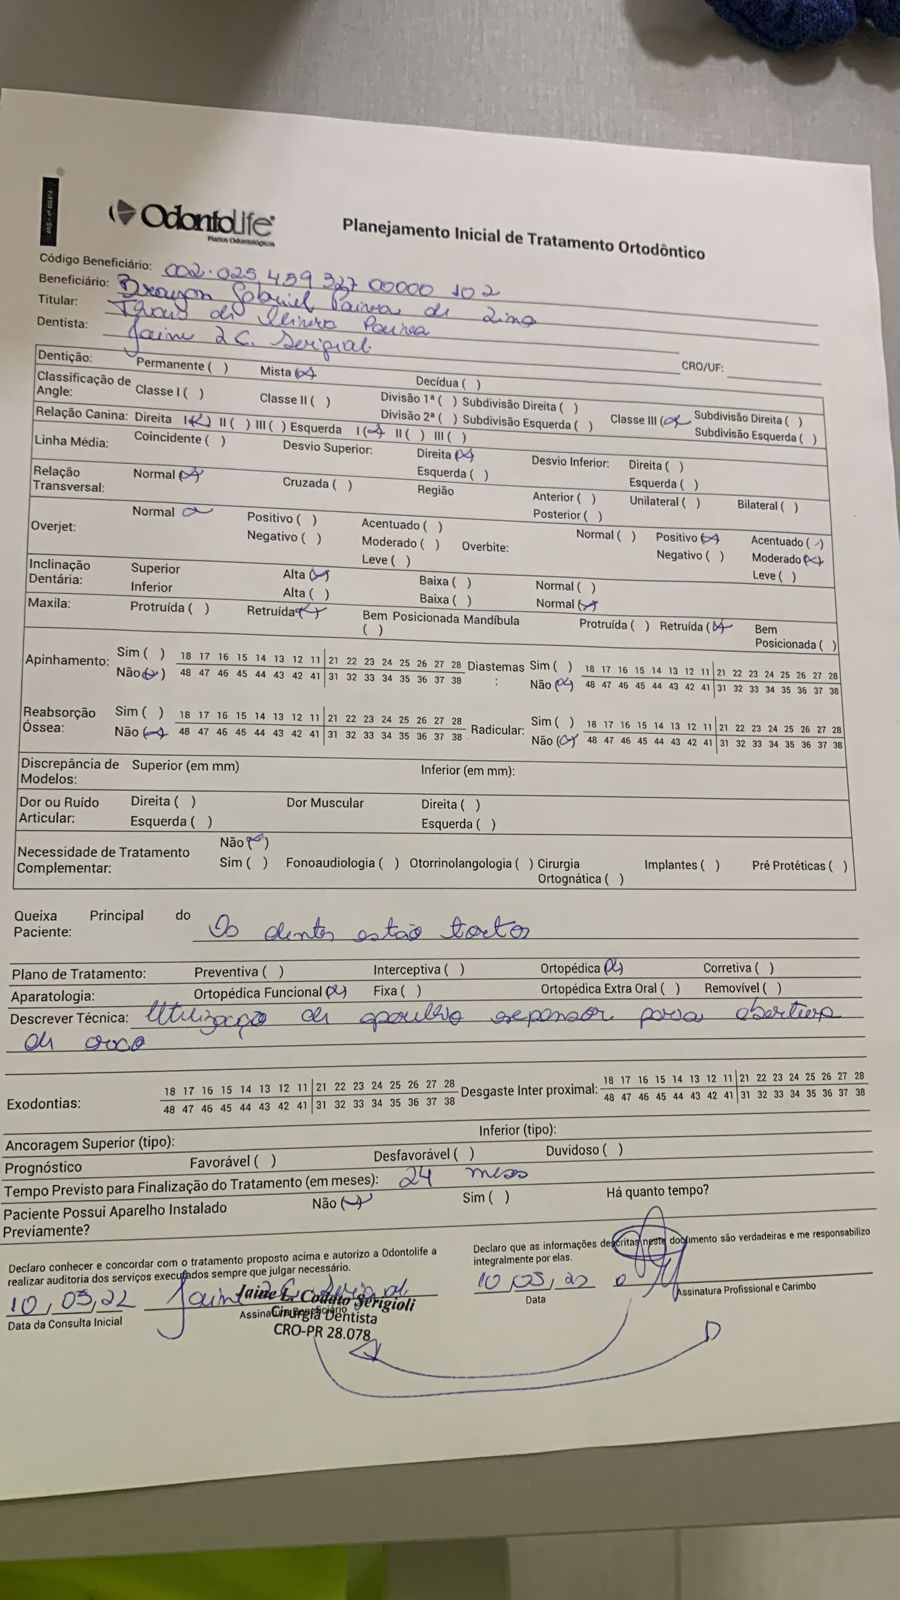 OdontoLife
Planos Odontológicos
Planejamento Inicial de Tratamento Ortodôntico
Código Beneficiário: 002.025459327 00000 102
Beneficiário: Gabriel Paiva de Lima
Titular: de Oliveira Paiva
Dentista: Jaine L C. Serigioli
CRO/UF:
Dentição: Permanente ( ) Mista (x) Decídua ( )
Classificação de Angle: Classe I ( ) Classe II ( ) Divisão 1ª ( ) Subdivisão Direita ( ) Classe III (x) Subdivisão Direita ( )
Divisão 2ª ( ) Subdivisão Esquerda ( ) Subdivisão Esquerda ( )
Relação Canina: Direita I (x) II ( ) III ( ) Esquerda I (x) II ( ) III ( )
Linha Média: Coincidente ( ) Desvio Superior: Direita (x) Desvio Inferior: Direita ( )
Esquerda ( ) Esquerda ( )
Relação Transversal: Normal (x) Cruzada ( ) Região Anterior ( ) Unilateral ( ) Bilateral ( )
Posterior ( )
Overjet: Normal (x) Positivo ( ) Acentuado ( ) Overbite: Normal ( ) Positivo (x) Acentuado ( )
Negativo ( ) Moderado ( ) Negativo ( ) Moderado (x)
Leve ( ) Leve ( )
Inclinação Dentária: Superior Alta (x) Baixa ( ) Normal ( )
Inferior Alta ( ) Baixa ( ) Normal (x)
Maxila: Protruída ( ) Retruída (x) Bem Posicionada ( ) Mandíbula Protruída ( ) Retruída (x) Bem Posicionada ( )
Apinhamento: Sim ( ) 18 17 16 15 14 13 12 11 21 22 23 24 25 26 27 28 Diastemas: Sim ( ) 18 17 16 15 14 13 12 11 21 22 23 24 25 26 27 28
Não (x) 48 47 46 45 44 43 42 41 31 32 33 34 35 36 37 38 Não (x) 48 47 46 45 44 43 42 41 31 32 33 34 35 36 37 38
Reabsorção Óssea: Sim ( ) 18 17 16 15 14 13 12 11 21 22 23 24 25 26 27 28 Radicular: Sim ( ) 18 17 16 15 14 13 12 11 21 22 23 24 25 26 27 28
Não (x) 48 47 46 45 44 43 42 41 31 32 33 34 35 36 37 38 Não (x) 48 47 46 45 44 43 42 41 31 32 33 34 35 36 37 38
Discrepância de Modelos: Superior (em mm) Inferior (em mm):
Dor ou Ruído Articular: Direita ( ) Dor Muscular Direita ( )
Esquerda ( ) Esquerda ( )
Necessidade de Tratamento Complementar: Não (x)
Sim ( ) Fonoaudiologia ( ) Otorrinolangologia ( ) Cirurgia Ortognática ( ) Implantes ( ) Pré Protéticas ( )
Queixa Principal do Paciente: Os dentes estão tortos
Plano de Tratamento: Preventiva ( ) Interceptiva ( ) Ortopédica (x) Corretiva ( )
Aparatologia: Ortopédica Funcional (x) Fixa ( ) Ortopédica Extra Oral ( ) Removível ( )
Descrever Técnica: Utilização de aparelho expansor para abertura
de arco
Exodontias: 18 17 16 15 14 13 12 11 21 22 23 24 25 26 27 28 Desgaste Inter proximal: 18 17 16 15 14 13 12 11 21 22 23 24 25 26 27 28
48 47 46 45 44 43 42 41 31 32 33 34 35 36 37 38 48 47 46 45 44 43 42 41 31 32 33 34 35 36 37 38
Ancoragem Superior (tipo): Inferior (tipo):
Prognóstico Favorável ( ) Desfavorável ( ) Duvidoso ( )
Tempo Previsto para Finalização do Tratamento (em meses): 24 meses
Paciente Possui Aparelho Instalado Previamente? Não (x) Sim ( ) Há quanto tempo?
Declaro conhecer e concordar com o tratamento proposto acima e autorizo a Odontolife a
realizar auditoria dos serviços executados sempre que julgar necessário.
Declaro que as informações descritas neste documento são verdadeiras e me responsabilizo
integralmente por elas.
10,05,22
Data da Consulta Inicial
Assinatura Beneficiário
Jaine L. Collato Serigioli
Cirurgiã Dentista
CRO-PR 28.078
10,05,22
Data
Assinatura Profissional e Carimbo